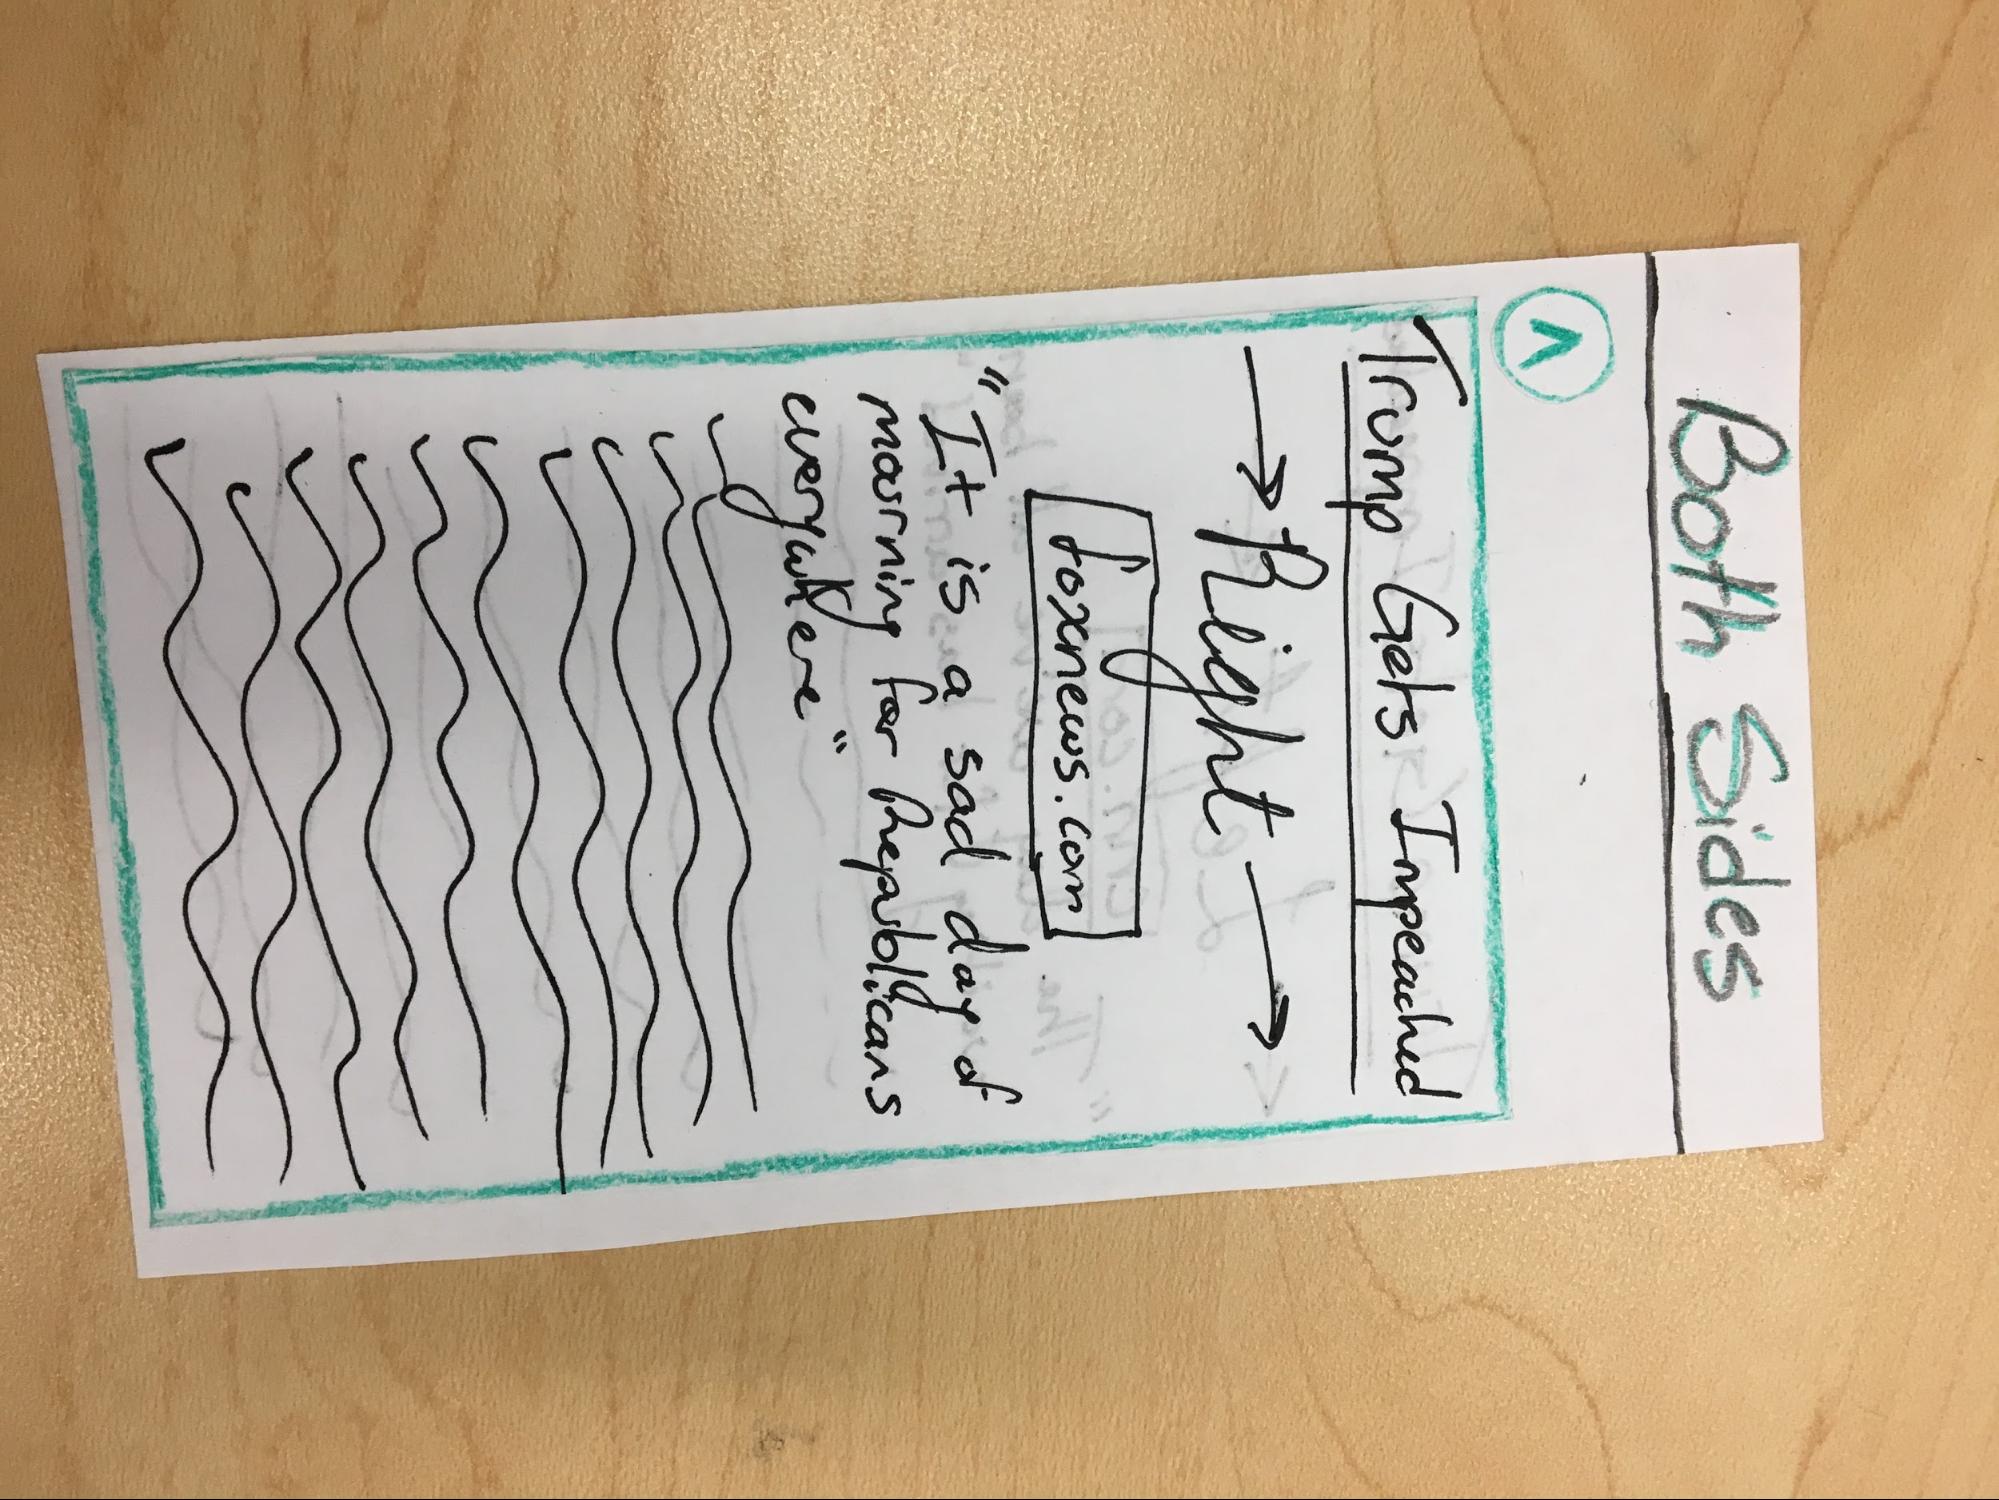 Both Sides
<
Trump Gets Impeached
→ Right →
foxnews.com
"It is a sad day of
mourning for Republicans
everywhere"